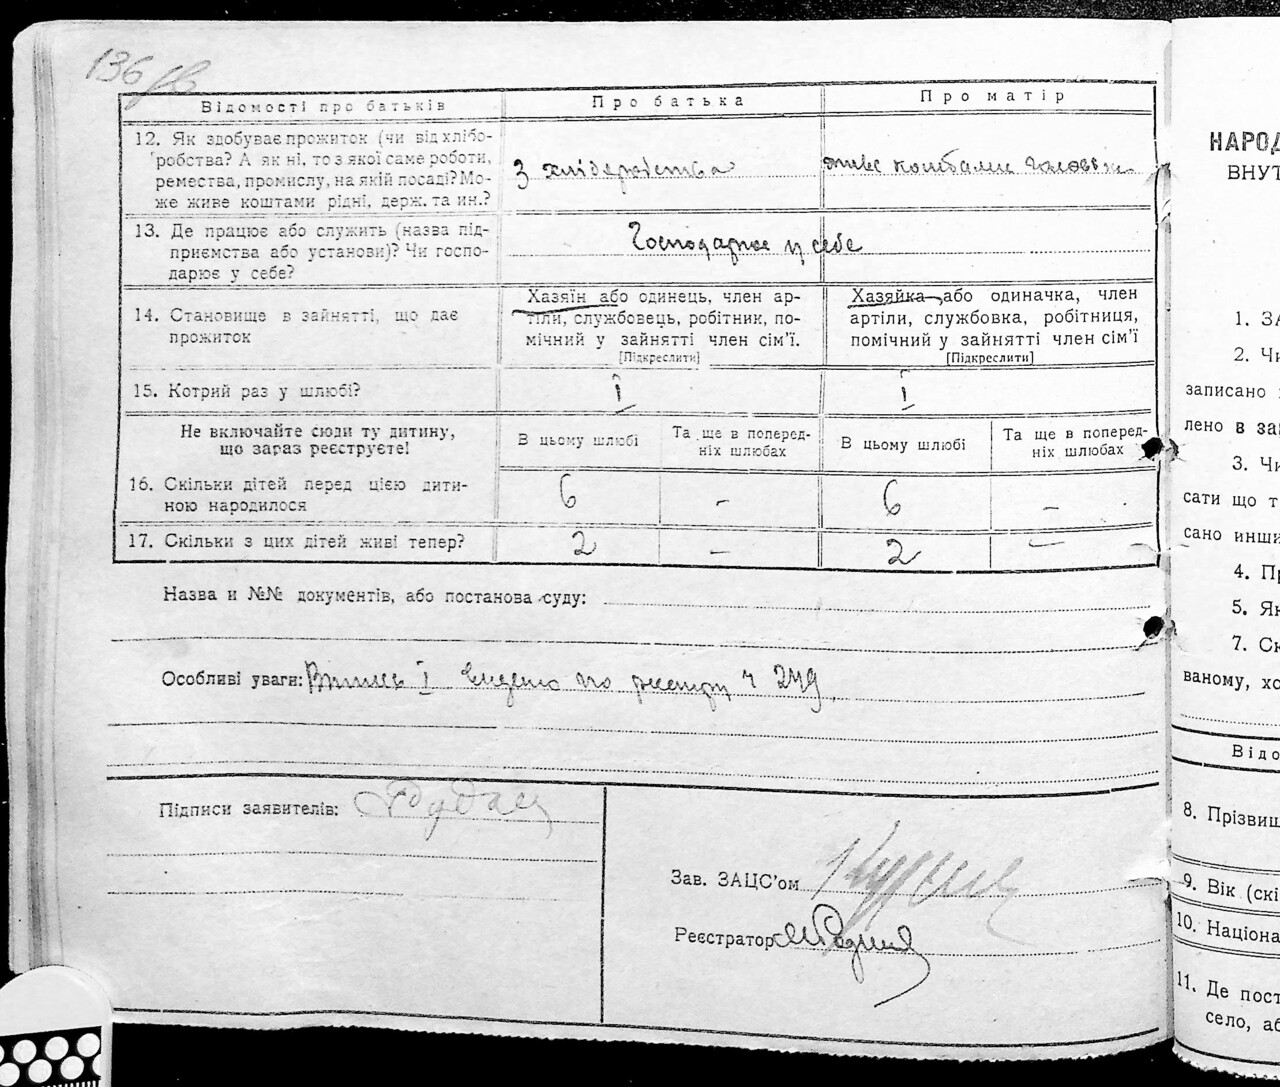 136
Відомості про батьків
Про батька
Про матір
12. Як здобуває прожиток (чи від хлібо-
робства? А як ні, то з якої саме роботи,
ремества, промислу, на якій посаді? Мо-
же живе коштами рідні, держ. та ин.?
З хліборобства
живе коштами чоловіка
13. Де працює або служить (назва під-
приємства або установи)? Чи госпо-
дарює у себе?
Господарює у себе
14. Становище в зайнятті, що дає
прожиток
Хазяїн або одинець, член ар-
тіли, службовець, робітник, по-
мічний у зайнятті член сім'ї.
[Підкреслити]
Хазяйка або одиначка, член
артіли, службовка, робітниця,
помічний у зайнятті член сім'ї
[Підкреслити]
15. Котрий раз у шлюбі?
І
І
Не включайте сюди ту дитину,
що зараз реєструєте!
В цьому шлюбі
Та ще в поперед-
ніх шлюбах
В цьому шлюбі
Та ще в поперед-
ніх шлюбах
16. Скільки дітей перед цією дити-
ною народилося
6 - 6 -
17. Скільки з цих дітей живі тепер?
2 - 2 -
Назва и №№ документів, або постанова суду:
Особливі уваги: Витяг І видано по реєстру ч 249
Підписи заявителів:
Зав. ЗАЦС'ом
Реєстратор
НАРОД
ВНУТ
1. ЗА
2. Чи
записано
лено в за
3. Чи
сати що т
сано инши
4. Пр
5. Як
7. Ск
ваному, хо
Відо
8. Прізвищ
9. Вік (скі
10. Націона
11. Де пост
село, аб